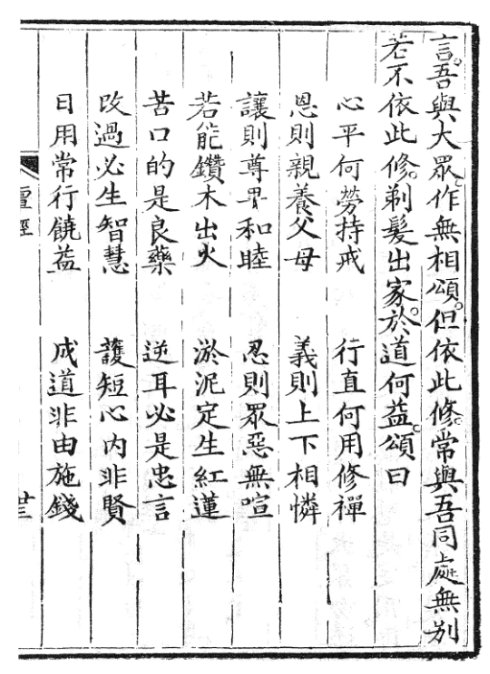 言。吾與大眾。作無相頌。但依此修。常與吾同處無別
若不依此修。剃髮出家。於道何益。頌曰
心平何勞持戒　行直何用修禪
恩則親養父母　義則上下相憐
讓則尊卑和睦　忍則眾惡無喧
若能鑽木出火　淤泥定生紅蓮
苦口的是良藥　逆耳必是忠言
改過必生智慧　護短心內非賢
日用常行饒益　成道非由施錢
壇經　廿三